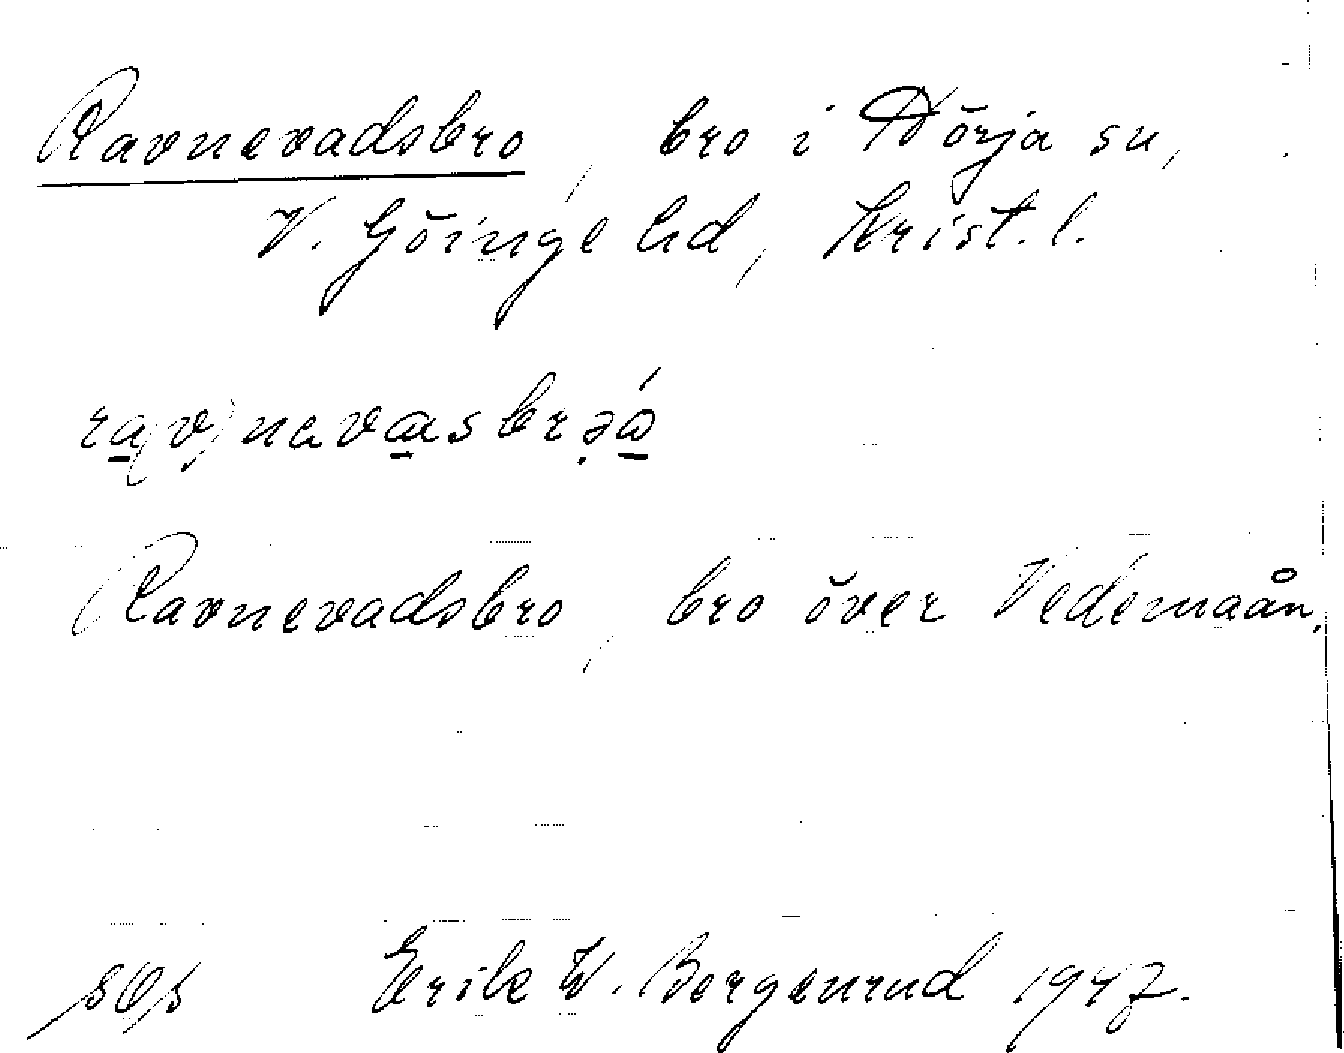 Ravnevadsbro, bro i Nörja sn,
V. Göinge hd, Krist. l.
ra(v)nevasbrəå
Ravnevadsbro, bro över Vedemaån.
Erik W. Bergenrud 1947.